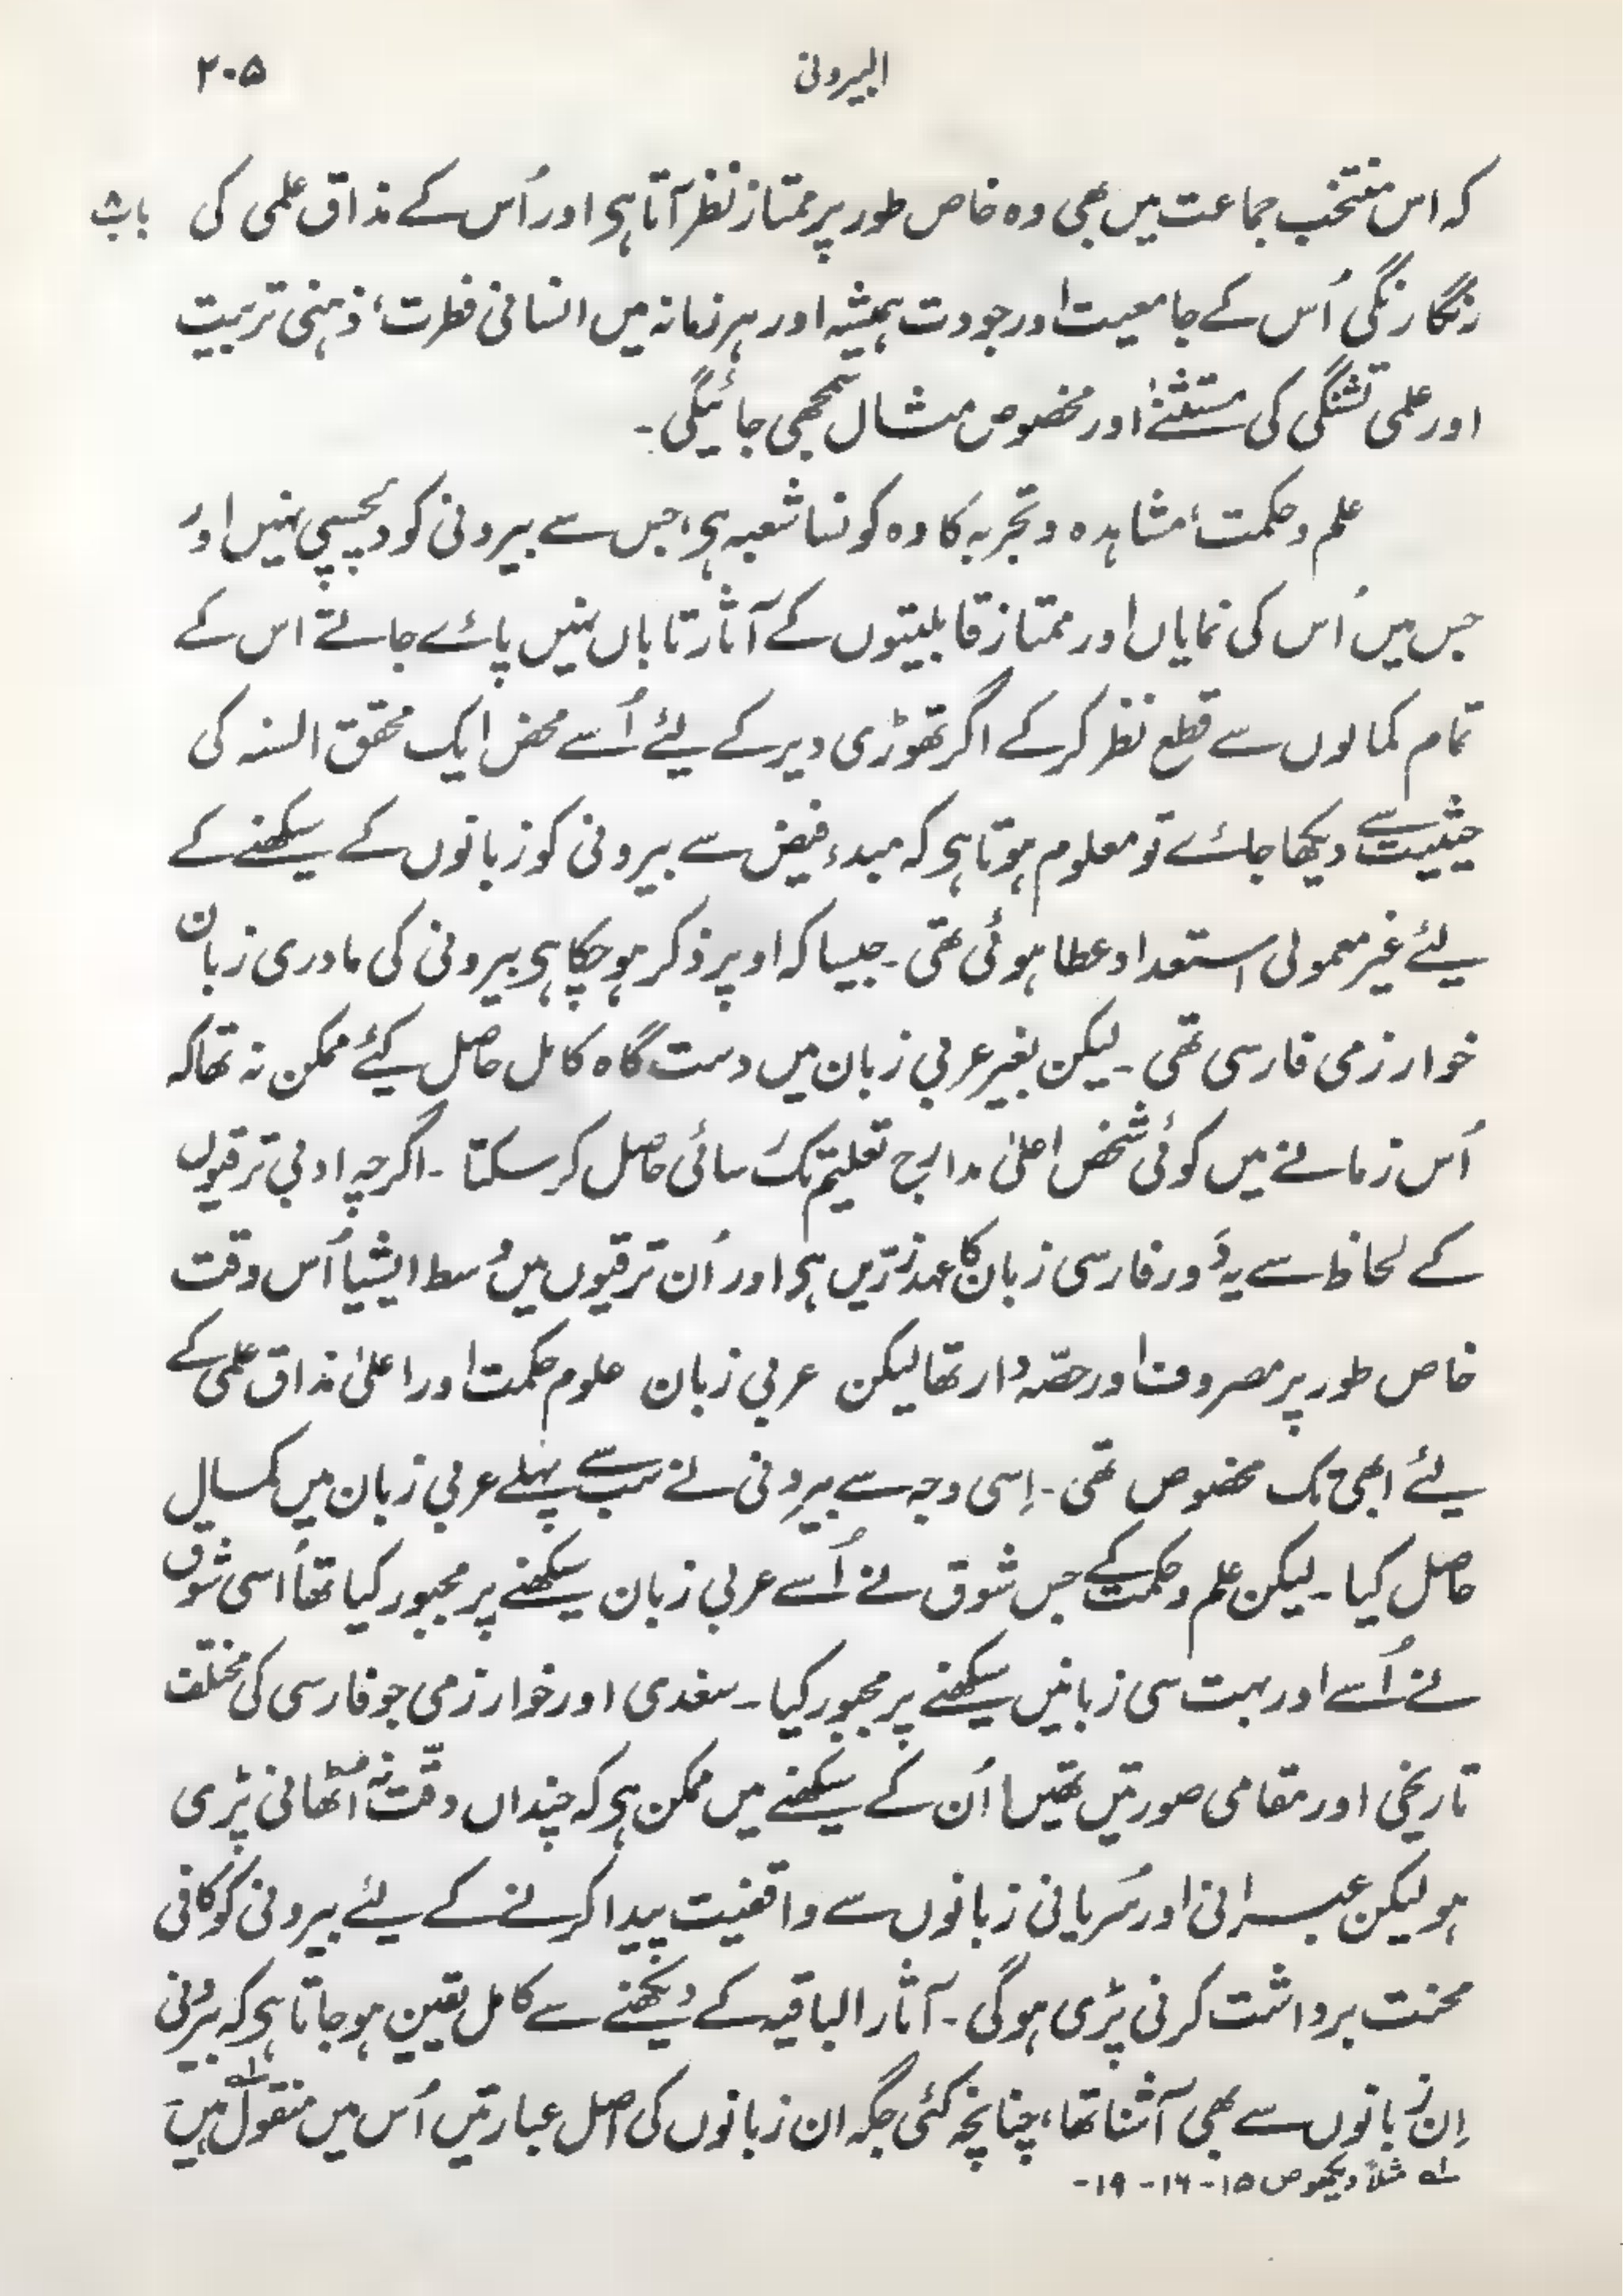 البیرونی ۲۰۵
کہ اس منتخب جماعت میں بھی وہ خاص طور پر ممتاز نظر آتا ہی اور اُس کے مذاق علمی کی
رنگا رنگی اُس کے جامعیت اور جودت ہمیشہ اور ہر زمانہ میں انسانی فطرت، ذہنی تربیت
اور علمی تشنگی کی مستثنےٰ اور مخصوص مثال سمجھی جائیگی۔
علم و حکمت، مشاہدہ و تجربہ کا وہ کونسا شعبہ ہی، جس سے بیرونی کو دلچسپی نہیں اور
جس میں اُس کی نمایاں اور ممتاز قابلیتوں کے آثار تاباں نہیں پائے جاتے اس کے
تمام کمالوں سے قطع نظر کر کے اگر تھوڑی دیر کے لیئے اُسے محض ایک محقق السنہ کی
حیثیت سے دیکھا جائے تو معلوم ہوتا ہی کہ مبدء فیض سے بیرونی کو زبانوں کے سیکھنے کے
لیئے غیر معمولی استعداد عطا ہوئی تھی۔ جیسا کہ اوپر ذکر ہو چکا ہی بیرونی کی مادری زبان
خوارزمی فارسی تھی۔ لیکن بغیر عربی زبان میں دست گاہ کامل حاصل کیئے ممکن نہ تھا کہ
اُس زمانے میں کوئی شخص اعلیٰ مدارج تعلیم تک رسائی حاصل کر سکتا۔ اگرچہ ادبی ترقیوں
کے لحاظ سے یہ دَور فارسی زبان کا عہد زرّیں ہی اور اُن ترقیوں میں وُسط ایشیا اُس وقت
خاص طور پر مصروف اور حصّہ دار تھا لیکن عربی زبان علوم حکمت اور اعلیٰ مذاق علمی کے
لیئے ابھی تک مخصوص تھی۔ اِسی وجہ سے بیرونی نے سب سے پہلے عربی زبان میں کمال
حاصل کیا۔ لیکن علم و حکمت کے جس شوق نے اُسے عربی زبان سیکھنے پر مجبور کیا تھا اُسی شوق
نے اُسے اور بہت سی زبانیں سیکھنے پر مجبور کیا۔ سغدی اور خوارزمی جو فارسی کی مختلف
تاریخی اور مقامی صورتیں تھیں اُن کے سیکھنے میں ممکن ہی کہ چنداں دقّت نہ اُٹھانی پڑی
ہو لیکن عبرانی اور سُریانی زبانوں سے واقفیت پیدا کرنے کے لیئے بیرونی کو کافی
محنت برداشت کرنی پڑی ہوگی۔ آثار الباقیہ کے دیکھنے سے کامل یقین ہو جاتا ہی کہ بیرونی
اِن زبانوں سے بھی آشنا تھا، چنانچہ کئی جگہ ان زبانوں کی اصل عبارتیں اُس میں منقول ہیں
لہ مثلاً دیکھو ص ۱۵-۱۶-۱۹-